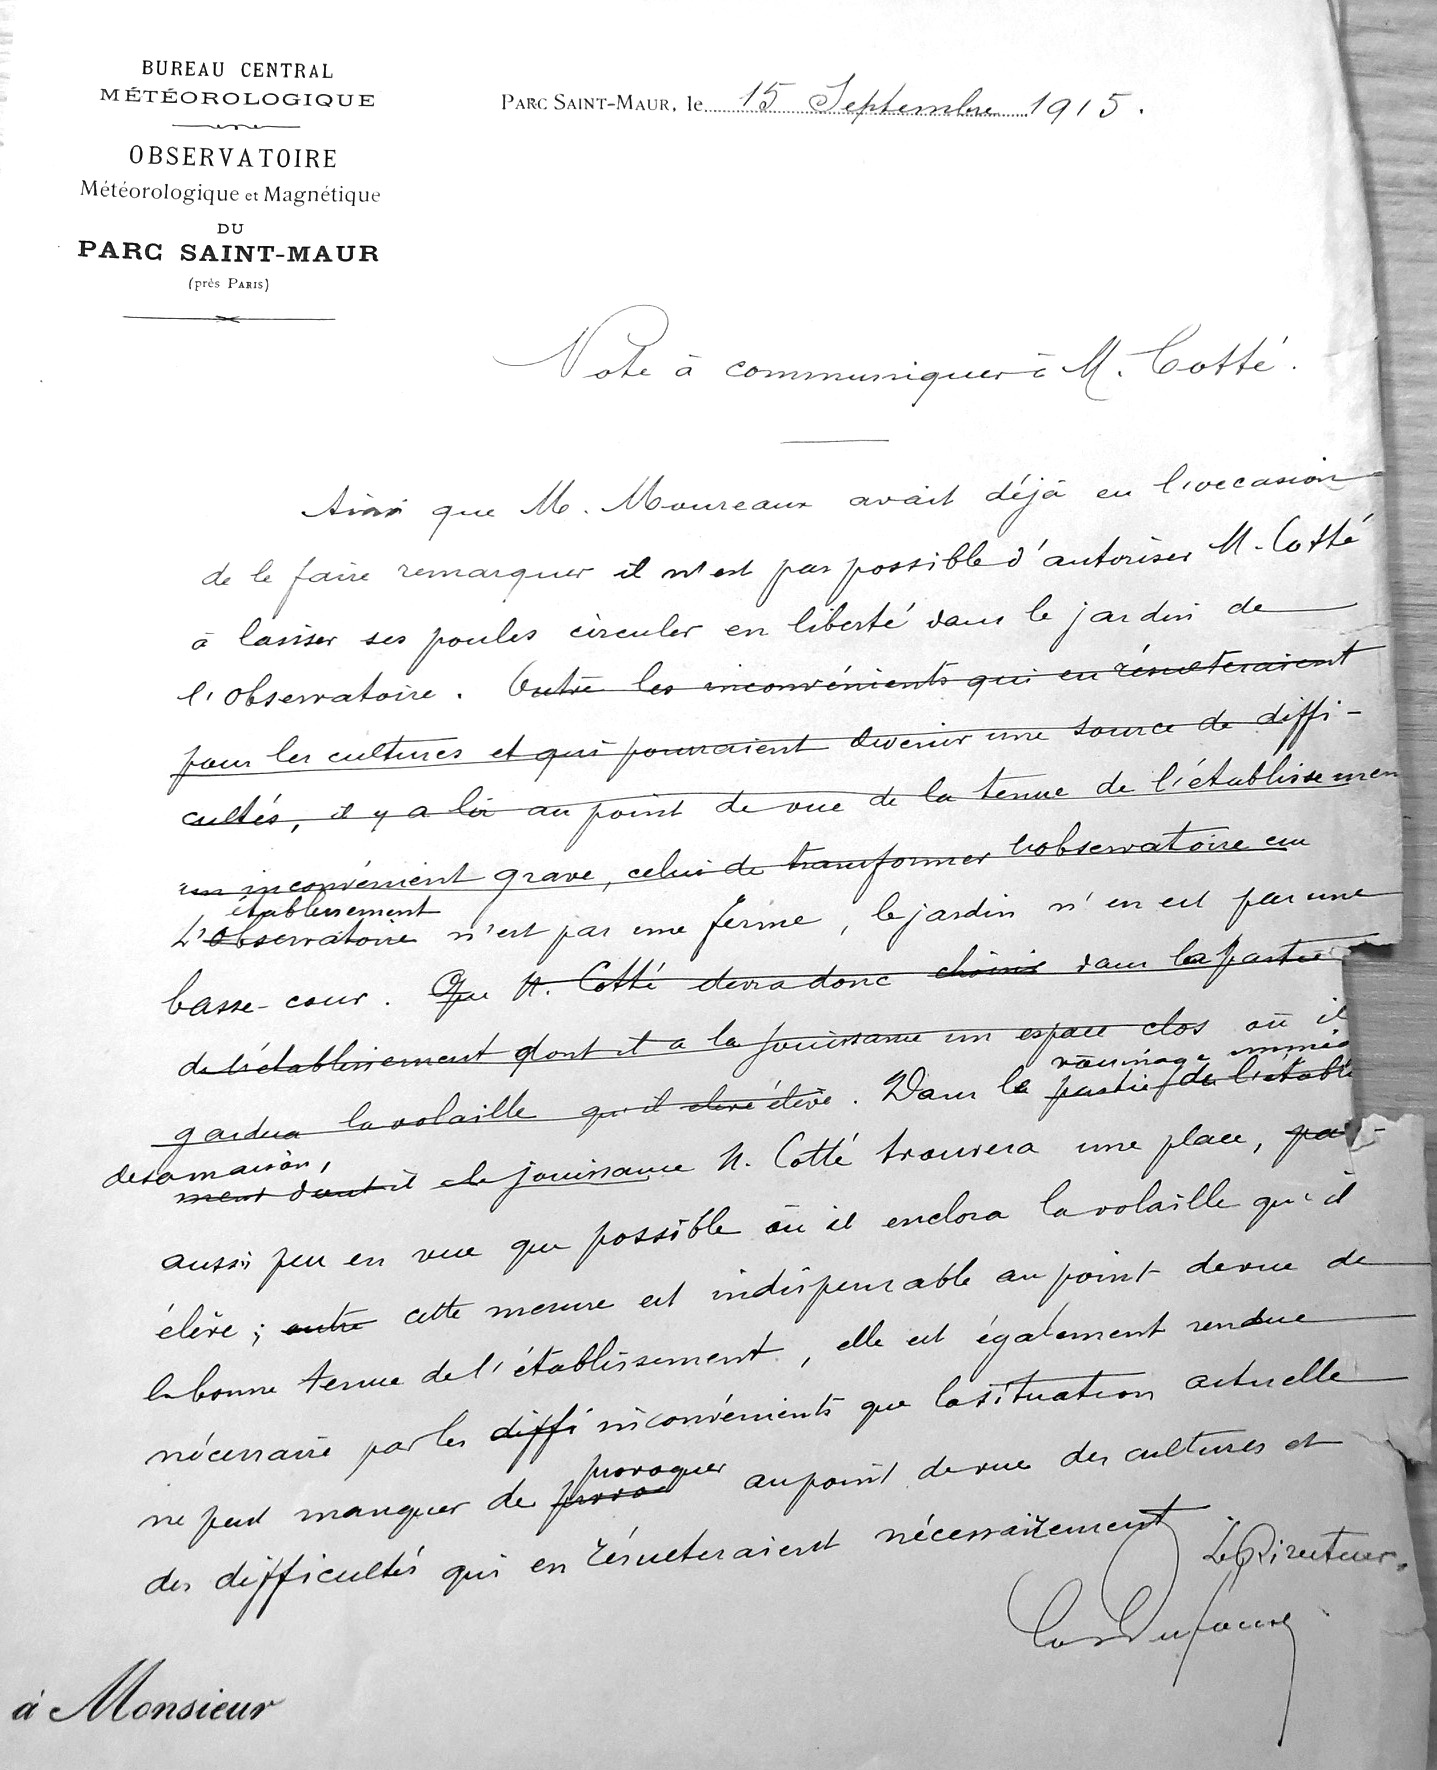 BUREAU CENTRAL
MÉTÉOROLOGIQUE
OBSERVATOIRE
Météorologique et Magnétique
DU
PARC SAINT-MAUR
(près PARIS)
PARC SAINT-MAUR, le 15 Septembre 1915.
Note à communiquer à M. Cotté.
Ainsi que M. Moureaux avait déjà eu l'occasion
de le faire remarquer il n'est pas possible d'autoriser M. Cotté
à laisser ses poules circuler en liberté dans le jardin de
l'observatoire. Outre les inconvénients qui en résulteraient
pour les cultures et qui pourraient devenir une source de diffi-
cultés, il y a là au point de vue de la tenue de l'établissemen
un inconvénient grave, celui de transformer l'observatoire en
établissement
L'observatoire n'est pas une ferme, le jardin n'en est pas une
basse-cour. Que M. Cotté devra donc choisir dans la partie
de l'établissement dont il a la jouissance un espace clos où il
voisinage immé
gardera la volaille qu'il élève. Dans la partie de l'établi
de sa maison,
ment dont il a la jouissance M. Cotté trouvera une place,
aussi peu en vue que possible où il enclora la volaille qu'il
élève; outre cette mesure est indispensable au point de vue de
la bonne tenue de l'établissement, elle est également rendue
nécessaire par les diffi inconvénients que la situation actuelle
provoquer
ne peut manquer de provoq au point de vue des cultures et
des difficultés qui en résulteraient nécessairement
Le Directeur,
Ch Dufour
à Monsieur